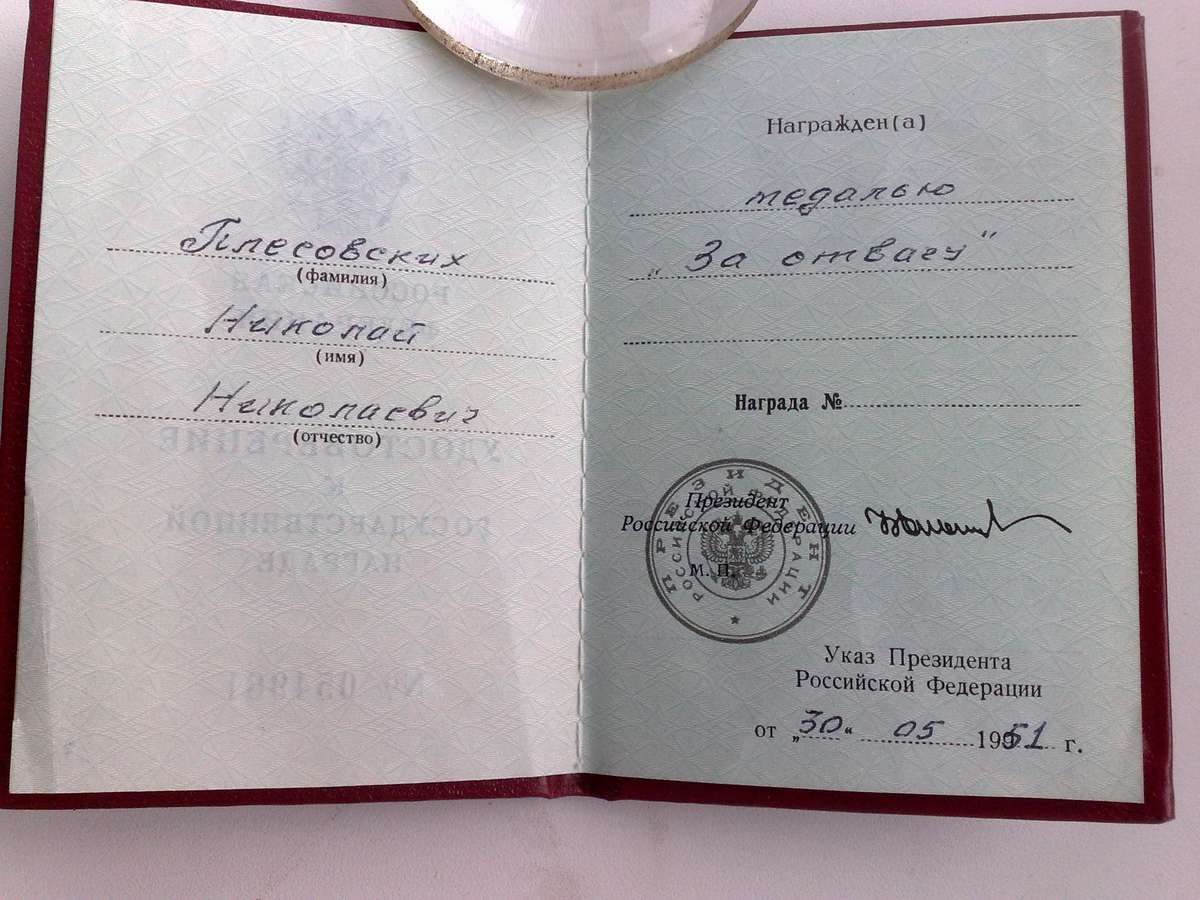 Плесовских
(фамилия)
Николай
(имя)
Николаевич
(отчество)
Награжден(а)
медалью
„За отвагу"
Награда №
Президент
Российской Федерации
М. П.
ПРЕЗИДЕНТ
РОССИЙСКОЙ ФЕДЕРАЦИИ
Указ Президента
Российской Федерации
от „30“ 05 1951 г.
РОССИЙСКАЯ
УДОСТОВЕРЕНИЕ
К
ГОСУДАРСТВЕННОЙ
НАГРАДЕ